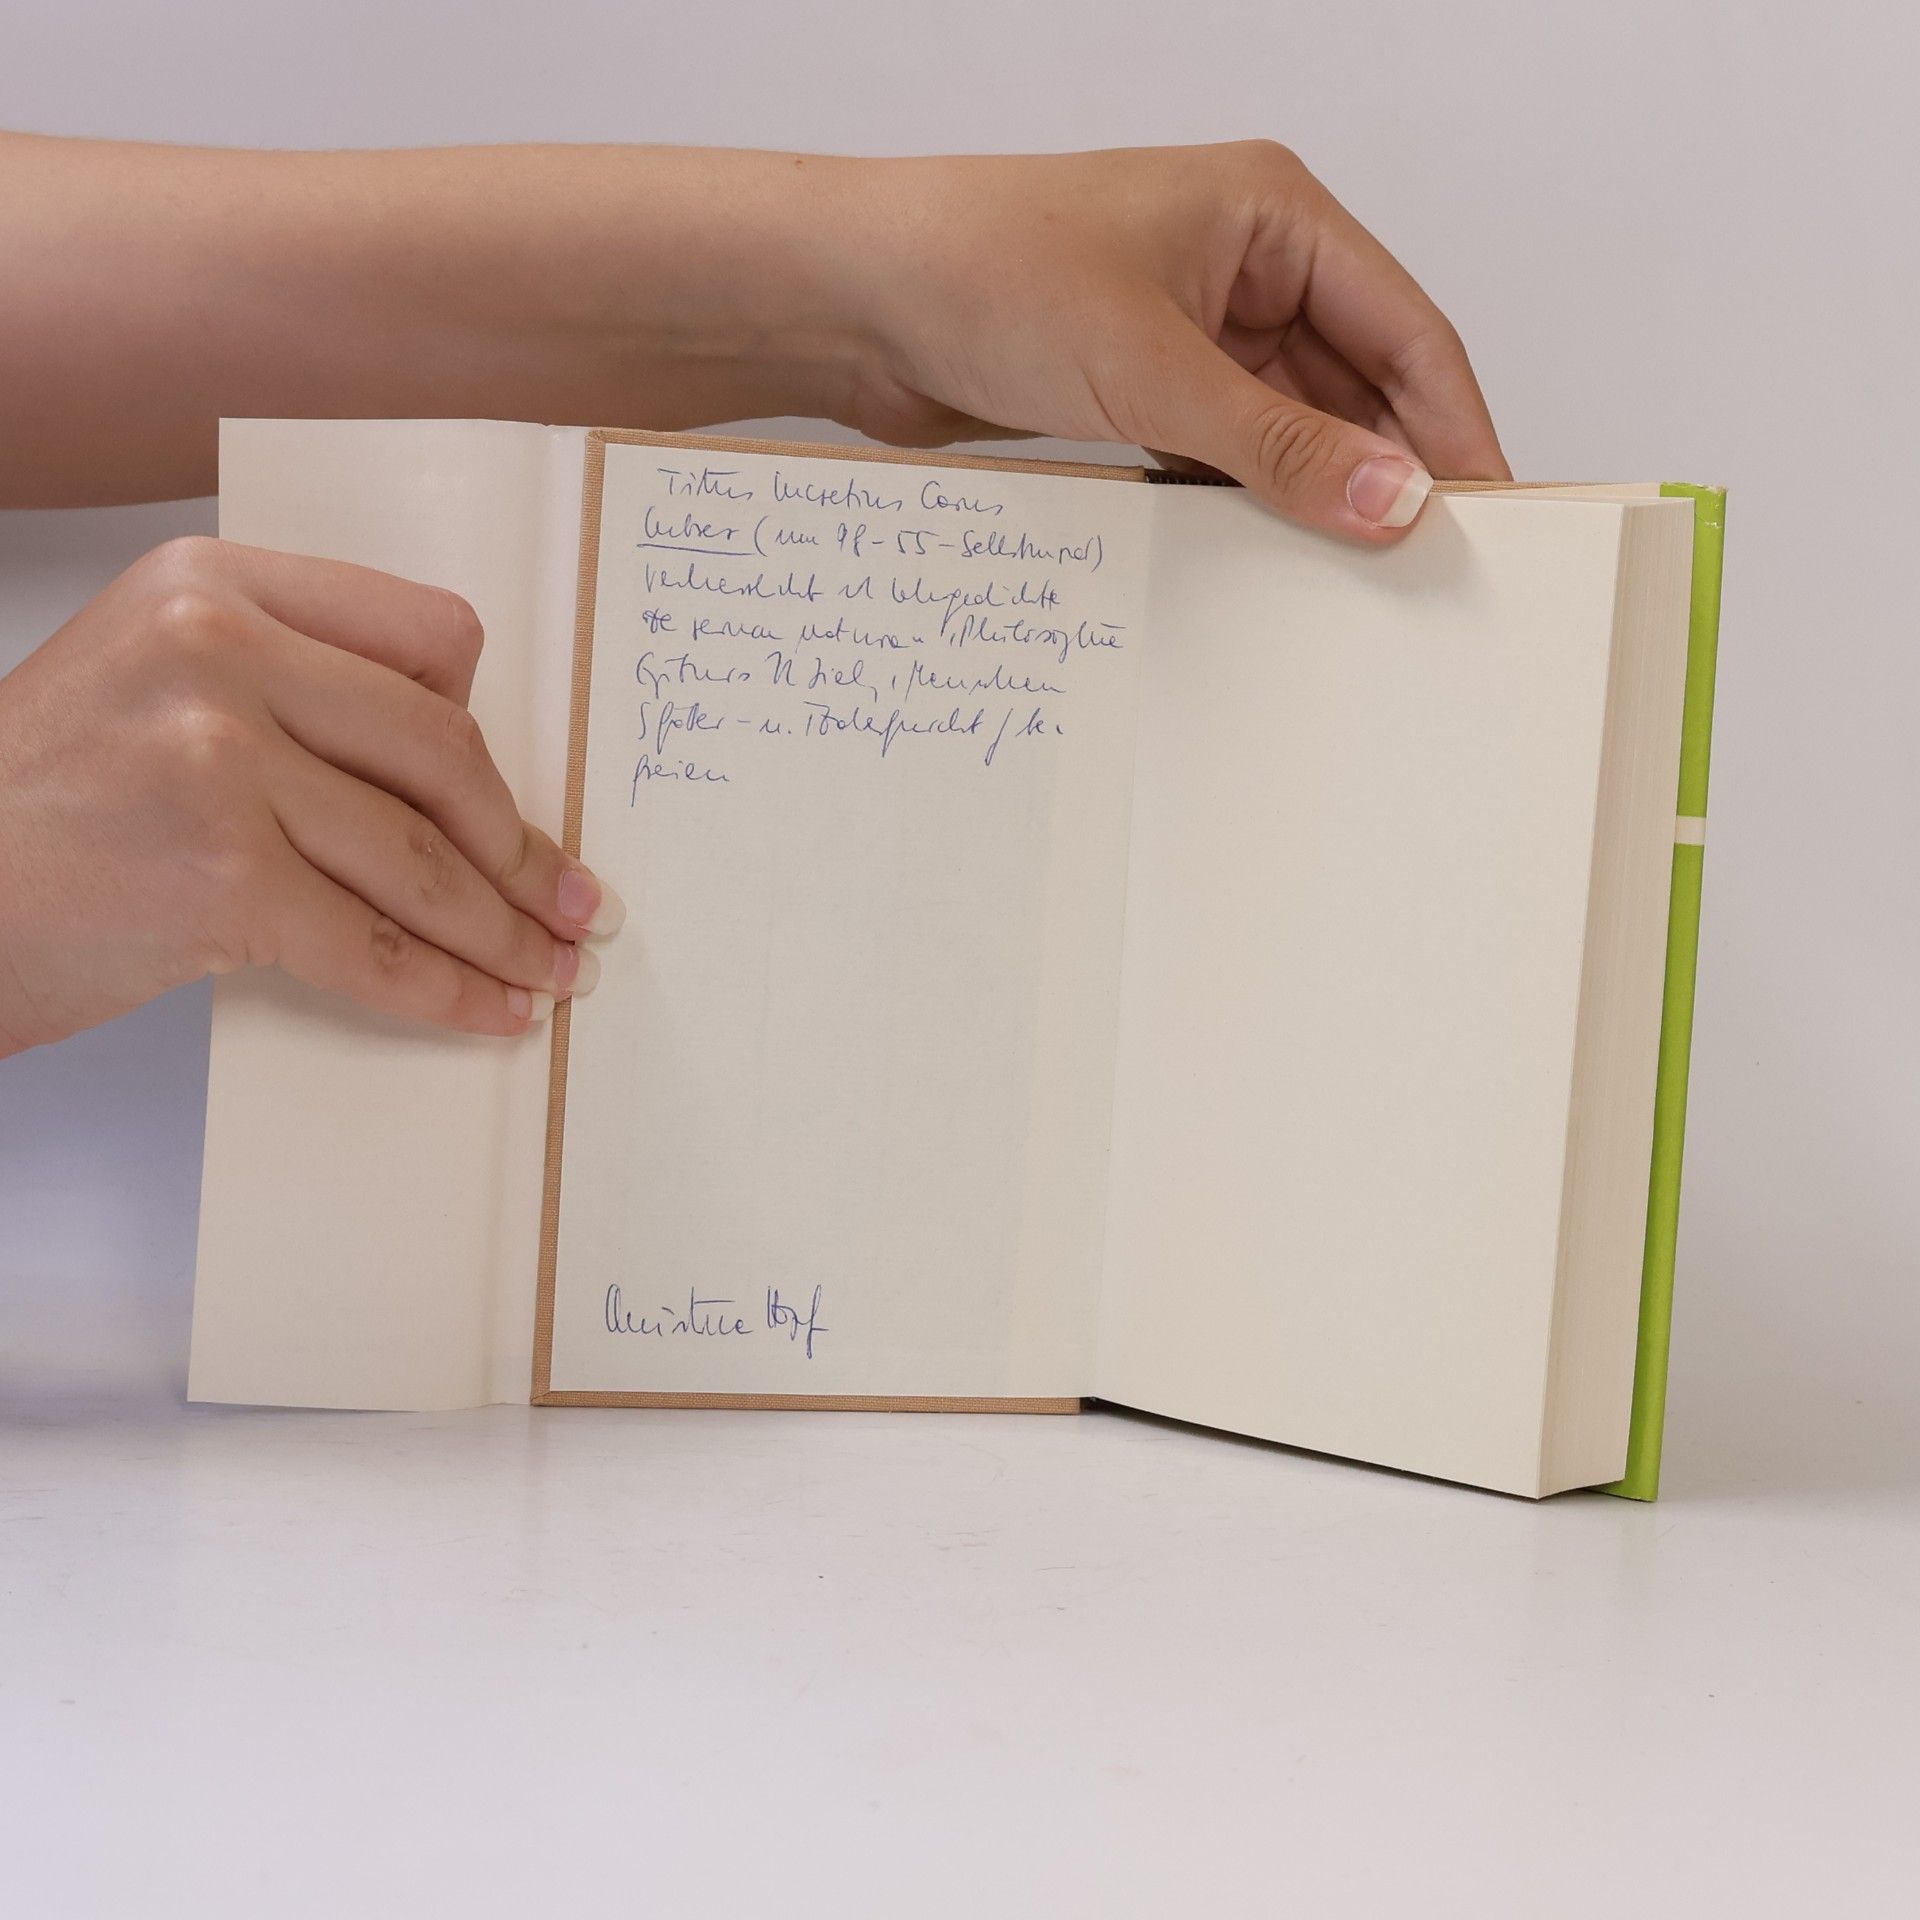 Titus Lucretius Carus
(um 98-55 - Selbstmord)
verherrlicht i. Lehrgedichte
de rerum natura "Philosophie
Epikurs m. Ziel, Menschen
v. Götter- u. Todesfurcht z. be-
freien
Christine Hopf